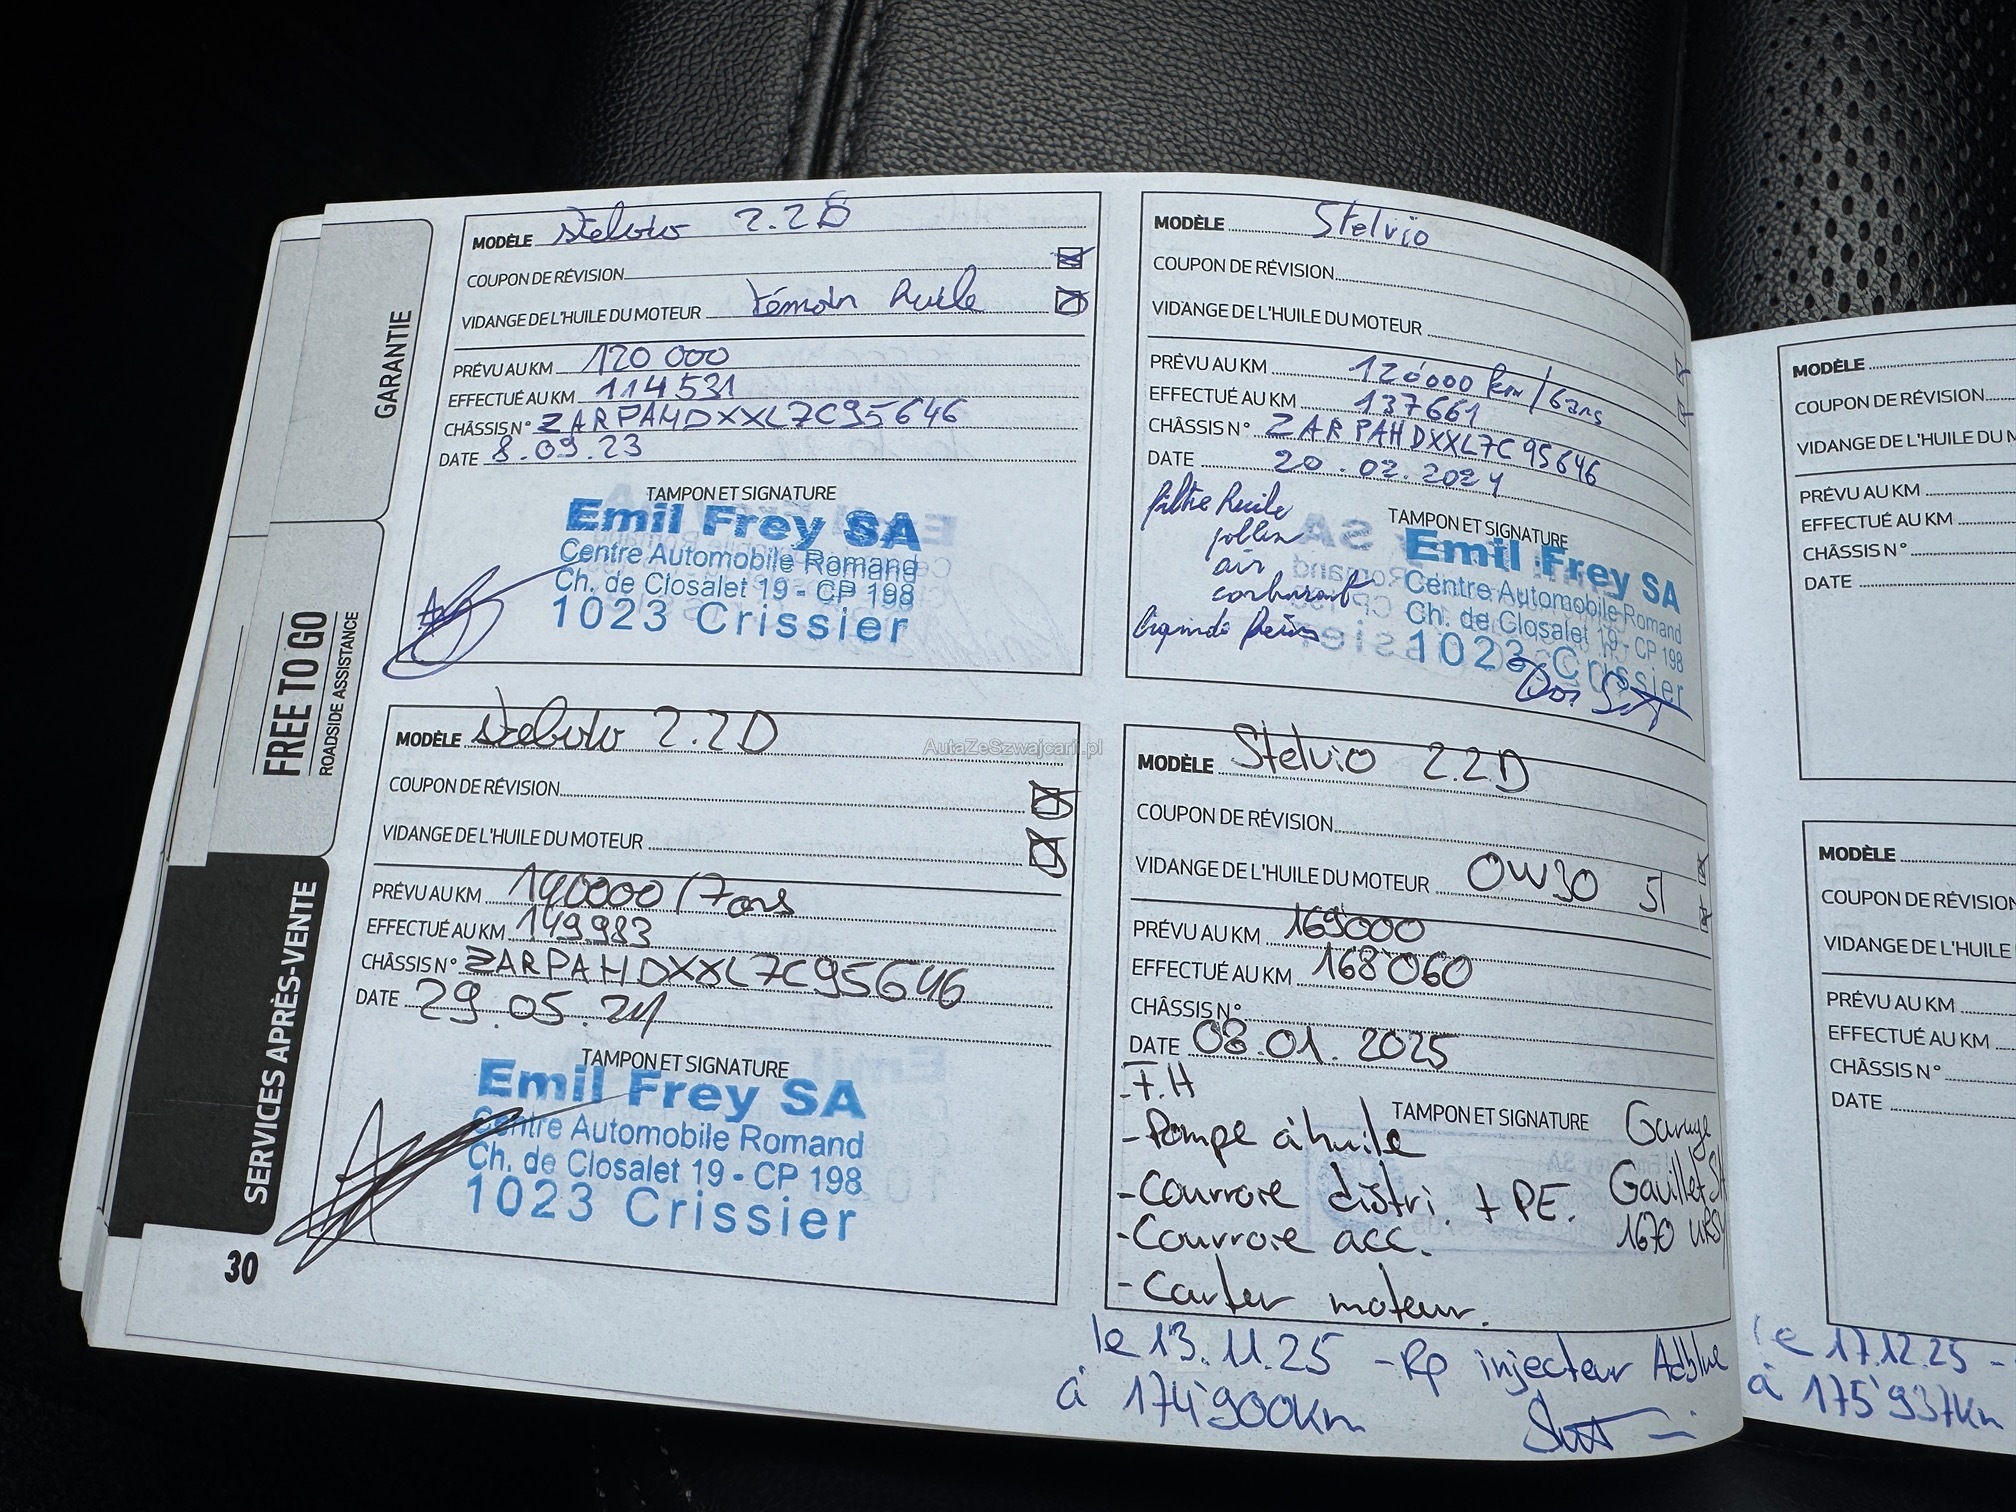 GARANTIE
FREE TO GO
ROADSIDE ASSISTANCE
SERVICES APRÈS-VENTE
30
MODÈLE Stelvio 2.2D
COUPON DE RÉVISION
VIDANGE DE L'HUILE DU MOTEUR témoin huile
PRÉVU AU KM 120 000
EFFECTUÉ AU KM 114531
CHÂSSIS N° ZARPAHDXXL7C95646
DATE 8.09.23
TAMPON ET SIGNATURE
Emil Frey SA
Centre Automobile Romand
Ch. de Closalet 19 - CP 198
1023 Crissier
MODÈLE Stelvio
COUPON DE RÉVISION
VIDANGE DE L'HUILE DU MOTEUR
PRÉVU AU KM 120000 km/6ans
EFFECTUÉ AU KM 137661
CHÂSSIS N° ZARPAHDXXL7C95646
DATE 20.02.2024
filtre huile
pollen
air
carburant
liquide freins
TAMPON ET SIGNATURE
Emil Frey SA
Centre Automobile Romand
Ch. de Closalet 19 - CP 198
1023 Crissier
MODÈLE Stelvio 2.2D
COUPON DE RÉVISION
VIDANGE DE L'HUILE DU MOTEUR
PRÉVU AU KM 140000 / 7ans
EFFECTUÉ AU KM 149983
CHÂSSIS N° ZARPAHDXXL7C95646
DATE 29.05.24
TAMPON ET SIGNATURE
Emil Frey SA
Centre Automobile Romand
Ch. de Closalet 19 - CP 198
1023 Crissier
AutaZeSzwajcarii.pl
MODÈLE Stelvio 2.2D
COUPON DE RÉVISION
VIDANGE DE L'HUILE DU MOTEUR 0W30 5l
PRÉVU AU KM 169000
EFFECTUÉ AU KM 168060
CHÂSSIS N°
DATE 08.01.2025
- F.H
- Pompe à huile
- Courroie distri. + PE.
- Courroie acc.
- Carter moteur.
TAMPON ET SIGNATURE
Garage
Gavillet SA
1670 URSY
le 13.11.25 - Rp injecteur Adblue
à 174'900km
MODÈLE
COUPON DE RÉVISION
VIDANGE DE L'HUILE DU M
PRÉVU AU KM
EFFECTUÉ AU KM
CHÂSSIS N°
DATE
MODÈLE
COUPON DE RÉVISION
VIDANGE DE L'HUILE
PRÉVU AU KM
EFFECTUÉ AU KM
CHÂSSIS N°
DATE
le 17.12.25 -
à 175'937km